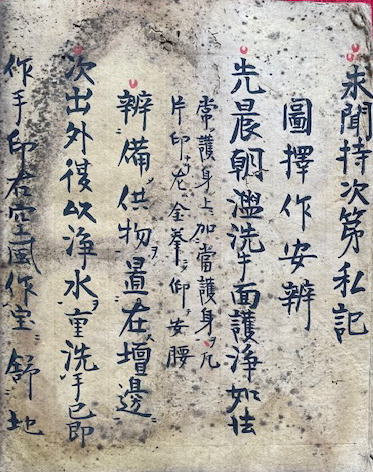 求聞持次第私記
圖擇作安辨
先晨朝盥洗手面護淨如法
常護身上加當護身ヲ凡
片印ナ左金拳ヲ仰安腰
辨備供物ヲ置在壇邊
次出外復以淨水ヲ重洗手已即
作手印右空風作宝舒地